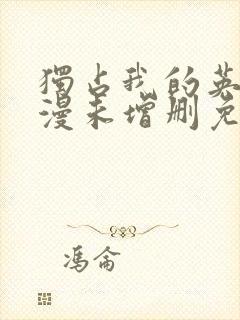 獨占我的英
漫未增删免
馮侖